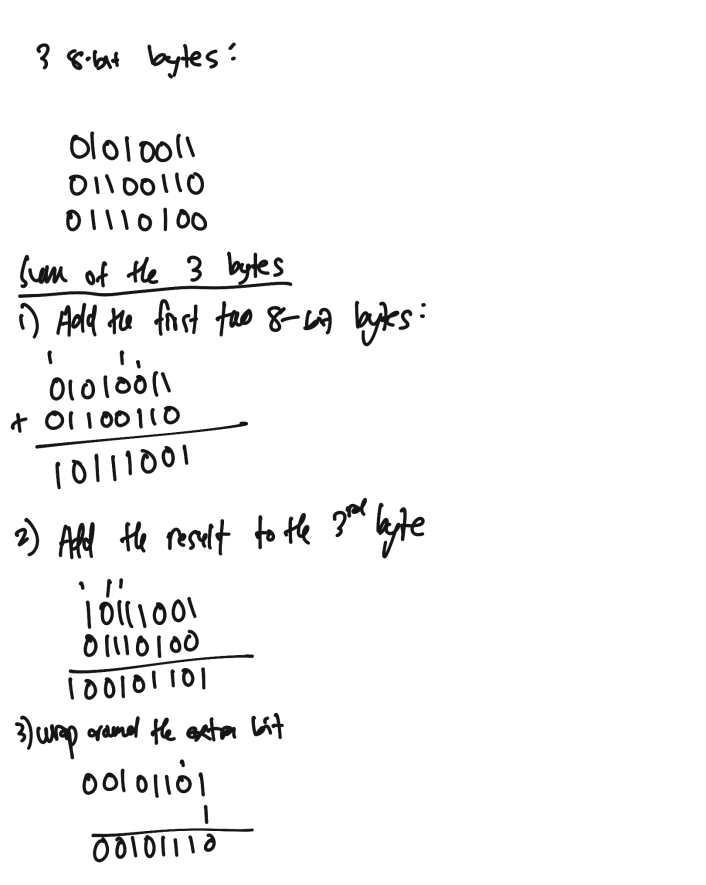 3 8-bit bytes:
01010011
01100110
01110100
Sum of the 3 bytes
1) Add the first two 8-bit bytes:
1 1 1
01010011
+ 01100110
10111001
2) Add the result to the 3rd byte
1 1 1
10111001
01110100
100101101
3) wrap around the extra bit
1
00101101
1
00101110